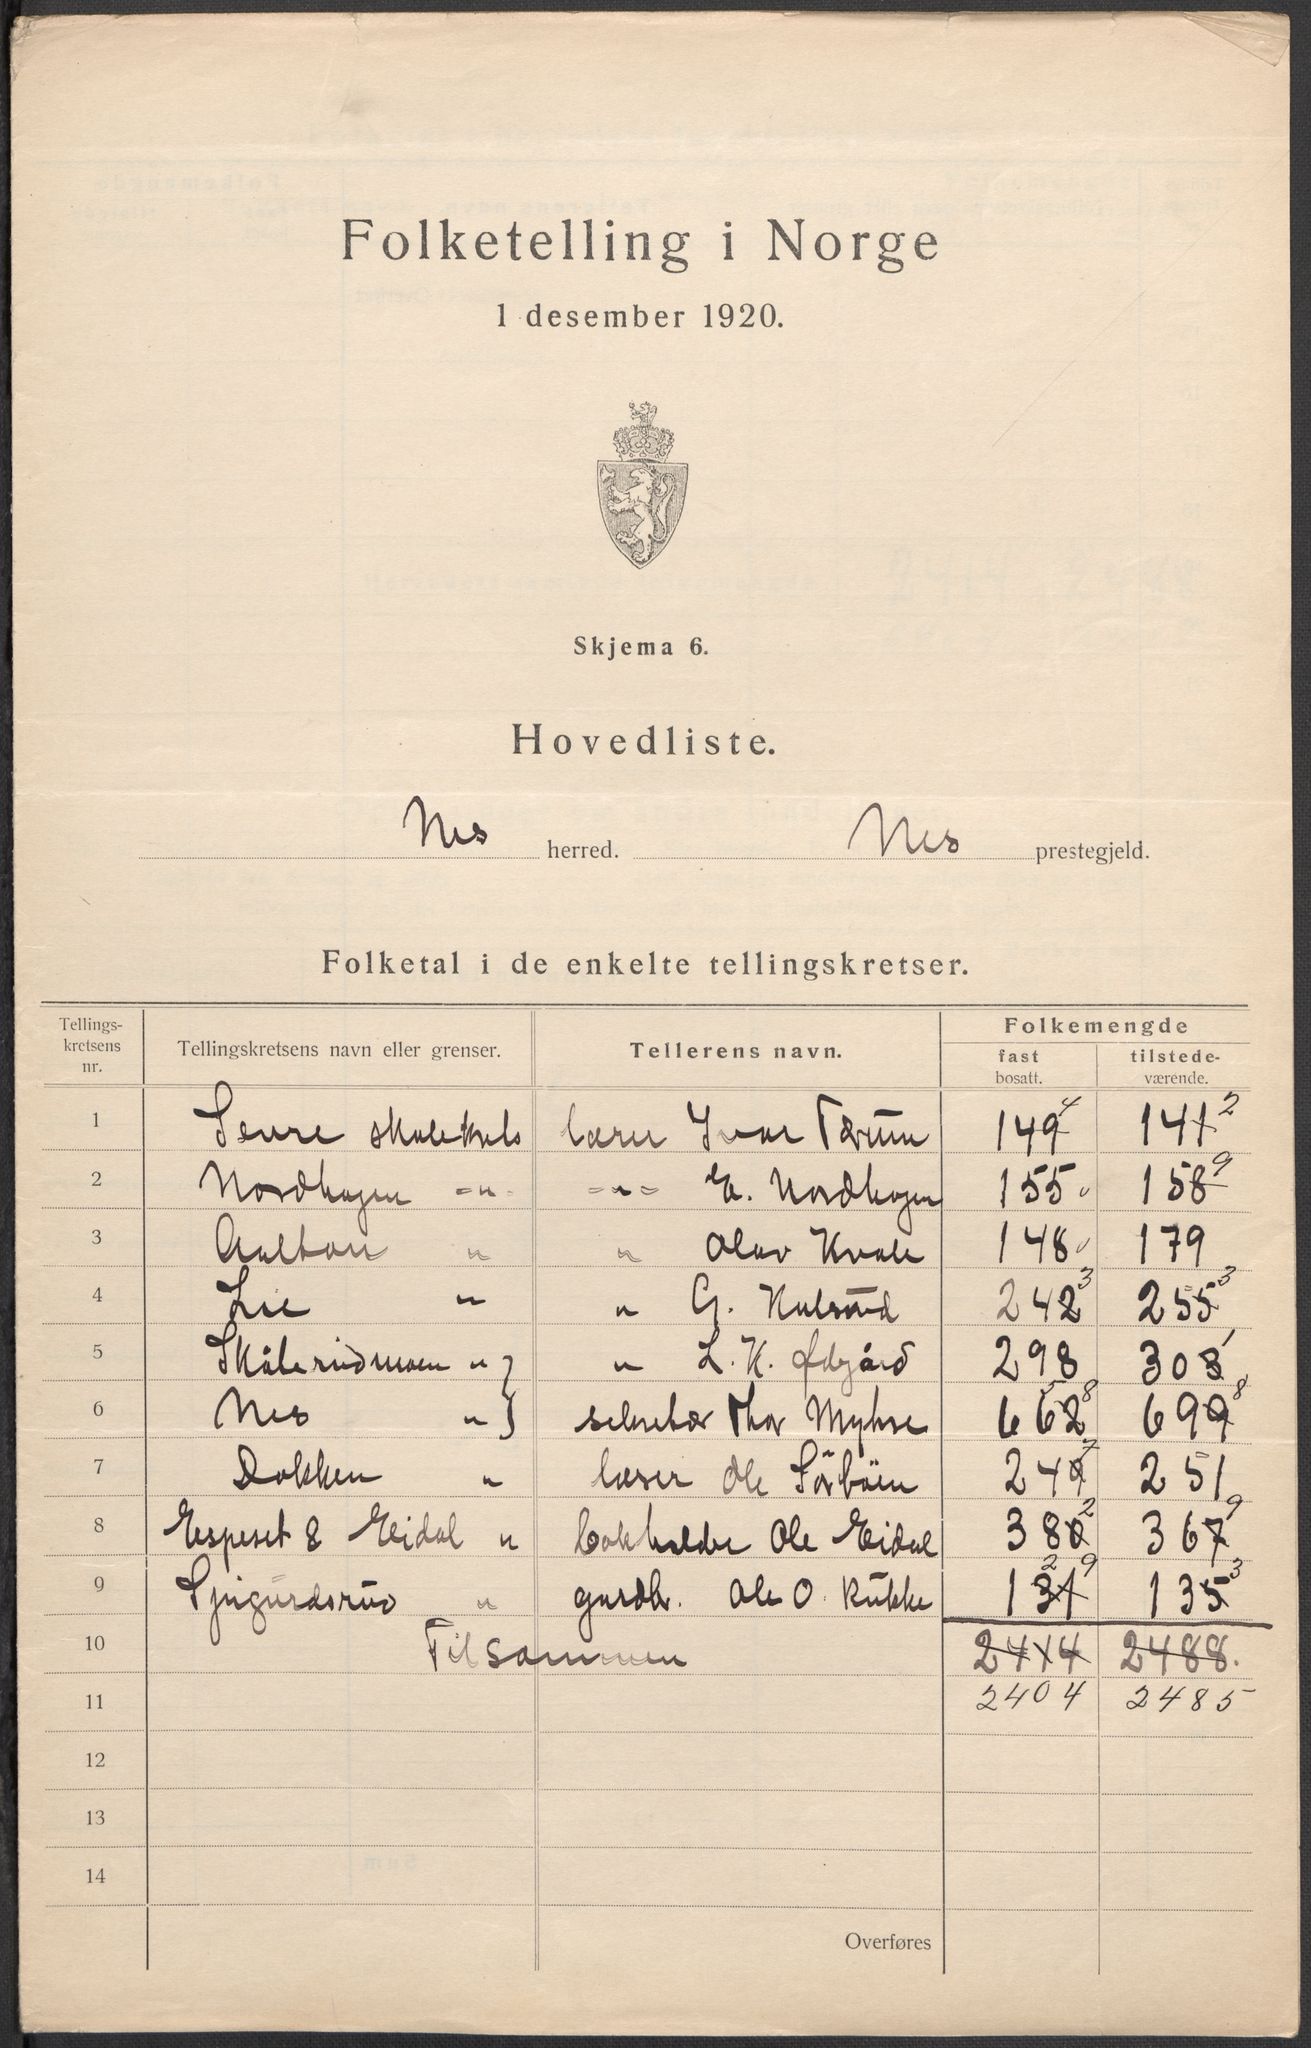 Folketelling i Norge
1 desember 1920.
Skjema 6.
Hovedliste.
Nes herred. Nes prestegjeld.
Folketal i de enkelte tellingskretser.
Tellings-
kretsens
nr.
Tellingskretsens navn eller grenser.
Tellerens navn.
Folkemengde
fast
bosatt.
tilstede-
værende.
1 lærer Ivar 149 4 141 2
2 Nordhagen -"- -"- E. Nordhagen 155 158 9
3 " " Olav Kvale 148 179
4 Lie " " G. 242 3 255 3
5 " " L. K. Ødegård 298 303 1
6 Nes " sekretær Thor Myhre 662 58 699 8
7 Dokken " lærer Ole Sörböen 249 7 251
8 Espeset & Eidal " bokholder Ole Eidal 380 2 367 9
9 " gardbr. Ole O. Rukke 131 29 135 3
10 Tilsammen 2414 2488.
11 2404 2485
12
13
14
Overføres